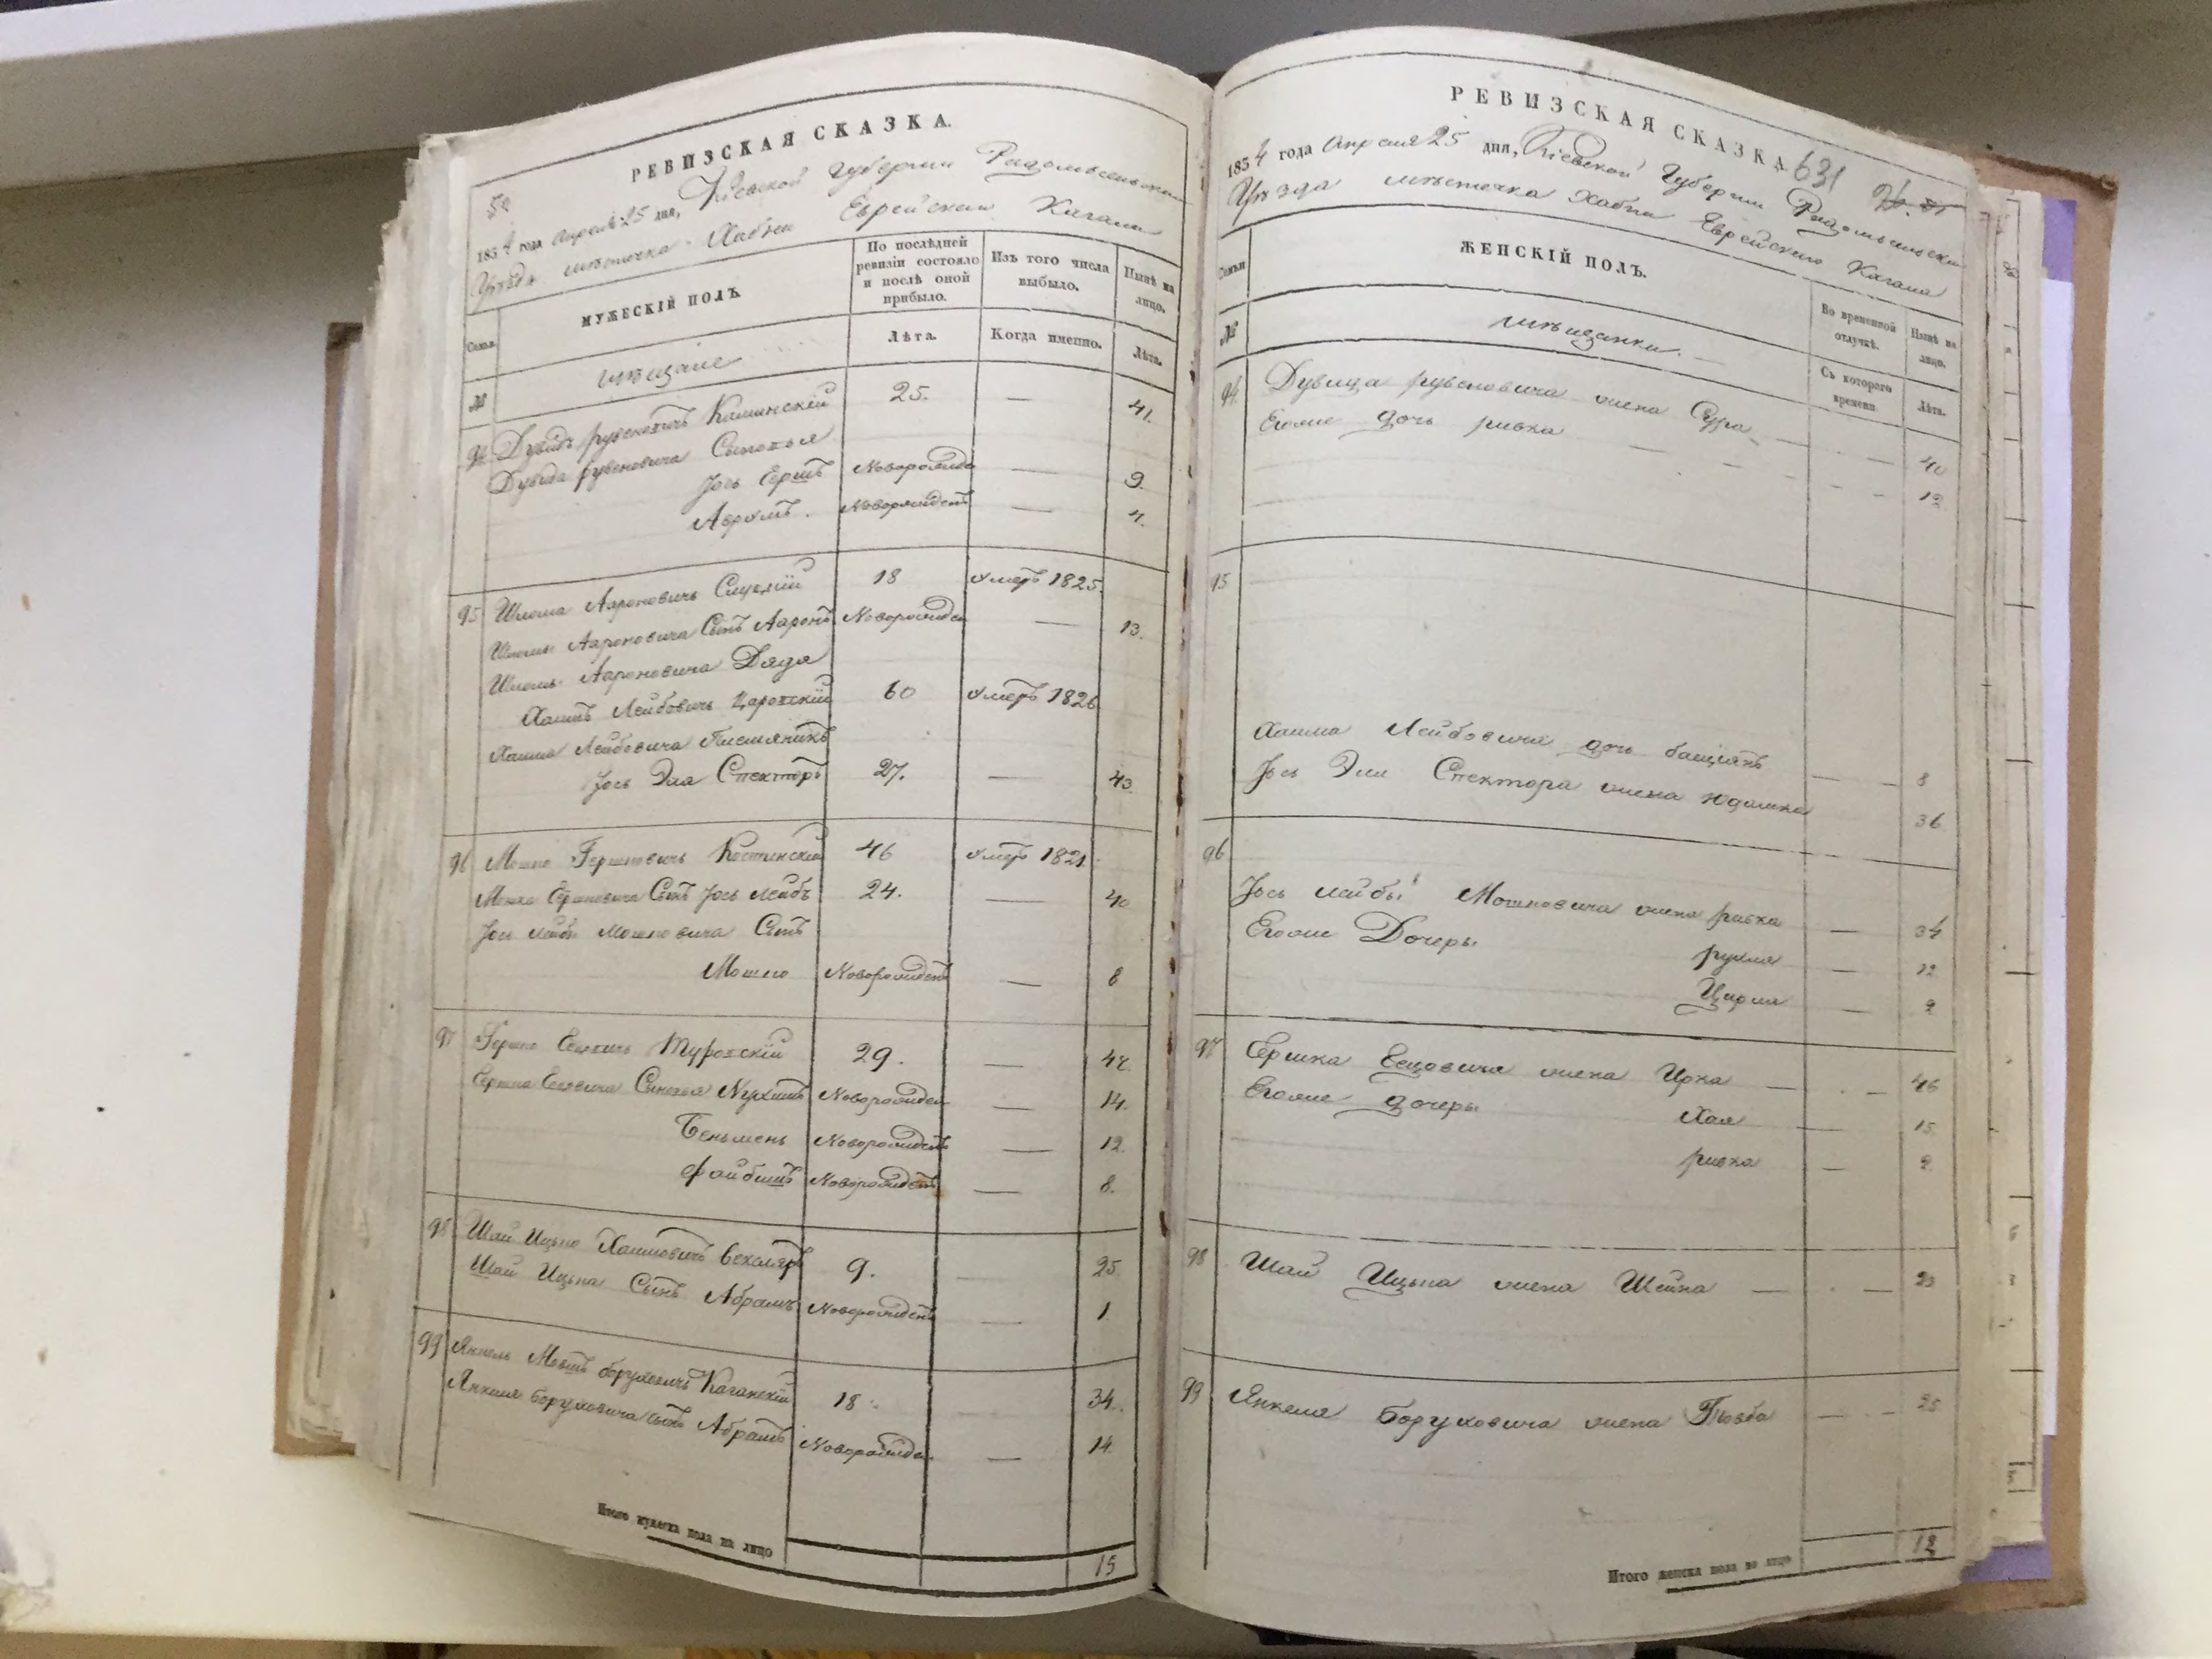 РЕВИЗСКАЯ СКАЗКА.
1834 года Апреля 25 дня, Кіевской Губерніи Радомысльскаго
Уѣзда мѣстечка Хабна Еврейскаго Кагала
МУЖЕСКІЙ ПОЛЪ.
По послѣдней ревизіи состояло и послѣ оной прибыло.
Изъ того числа выбыло.
Нынѣ на лицо.
Семьи.
Лѣта.
Когда именно.
Лѣта.
№
мѣщане
94 Дувидъ рувеновичъ Каминскій 25. — 41.
Дувида рувеновича Сыновья
Іось Ершъ Новорожден — 9.
Аврумъ. Новорожденъ — 4.
95 Шлиома Аароновичъ Слуцкій 18 умеръ 1825.
Шлиомы Аароновича Сынъ Ааронъ Новорожден — 13.
Шлиомы Аароновича Дядя
Хаимъ Лейбовичъ 60 умеръ 1826
Хаима Лейбовича Племяникъ
Іось Эля Спекторъ 27. — 43.
96 Мошко Гершковичъ 46 умеръ 1821.
Мошка Гершковича Сынъ Іось Лейбъ 24. — 40
Іось Лейбы Мошковича Сынъ
Мошко Новорожденъ — 8
97 Гершко Туровскій 29. —
Сыновья Новорожден — 14.
Беньмень Новорожденъ — 12.
Файбишъ Новорожденъ — 8.
98 Шай Ицько Хаимовичъ 9. — 25.
Шай Ицька Сынъ Абрамъ Новорожденъ — 1.
99 Янкель Мовшъ боруховичъ Каганскій 18. — 34.
Янкеля боруховича сынъ Абрамъ Новорожден — 14.
Итого мужеска пола на лицо 15
РЕВИЗСКАЯ СКАЗКА. 631
1834 года Апреля 25 дня, Кіевской Губерніи Радомысльскаго
Уѣзда мѣстечка Хабна Еврейскаго Кагала
Семьи
ЖЕНСКІЙ ПОЛЪ.
Во временной отлучкѣ.
Нынѣ на лицо.
№
мѣщанки. —
Съ котораго времени.
Лѣта.
94. Дувида рувеновича жена Сура — — 40
Егоже дочь ривка — — — — 12.
95
Хаима Лейбовича дочь — — 8
Іось Эли Спектора жена 36
96
Іось лейбы Мошковича жена ривка — 34
Егоже Дочеры рухля — 12
Цирля — 9
97 Гершка жена Ирка — — 46
Егоже дочеры Хая — 15.
ривка — 2.
98 Шай Ицька жена Шейна — — 23
99 Янкеля боруховича жена — — 25
Итого женска пола на лицо 12